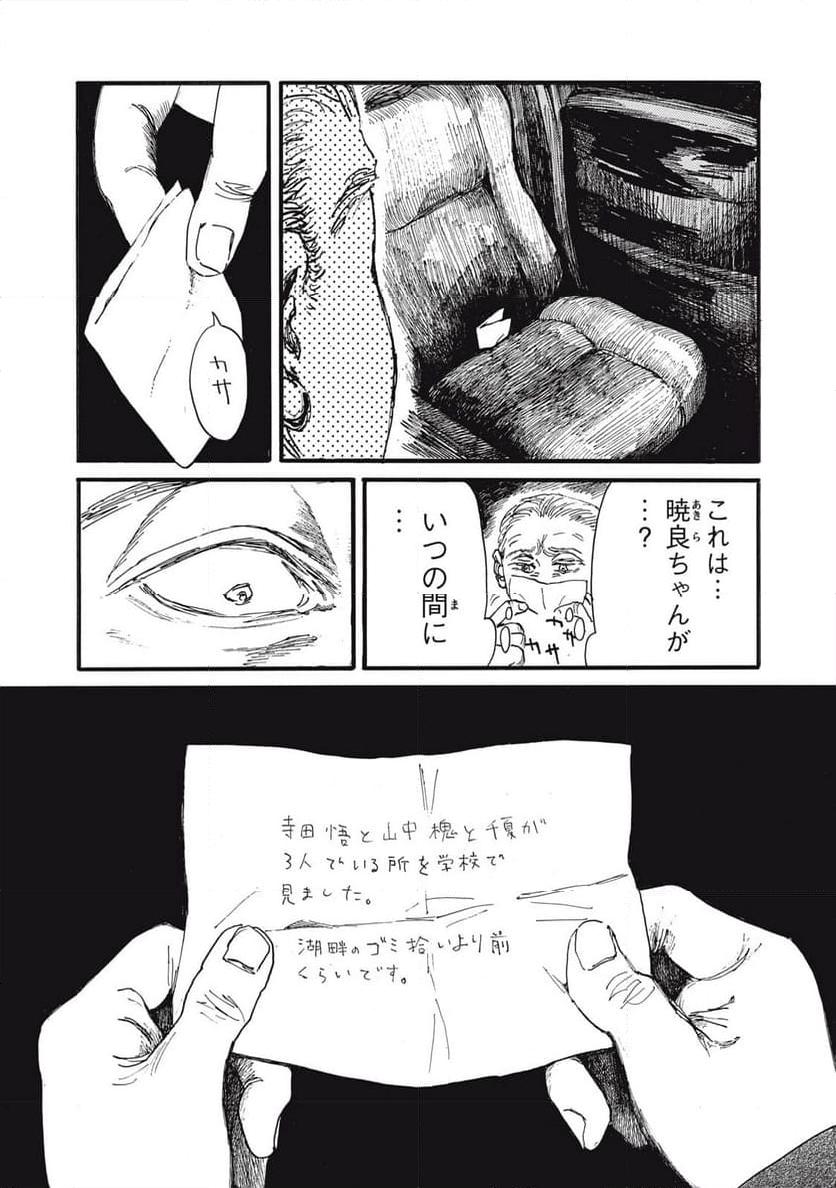 カサ
これは…
暁良ちゃんが
…?
あきら
いつの間に
…
ま
カサ
カサ
寺田悟と山中槐と千夏が
3人でいる所を学校で
見ました。
湖畔のゴミ拾いより前
くらいです。